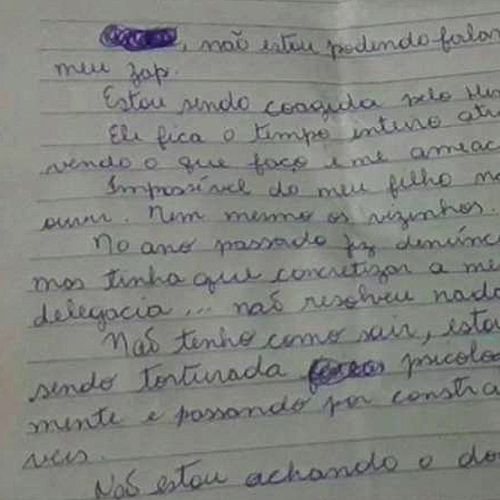 , não estou podendo falar
meu zap.
Estou sendo coagida pelo
Ele fica o tempo inteiro
vendo o que faço e me
Impossível do meu filho
ouvir. Nem mesmo os vizinhos.
No ano passado fiz
mas tinha que concretizar a
delegacia... não resolveu
Não tenho como sair,
sendo torturada
mente e passando por
veis.
Não estou achando o